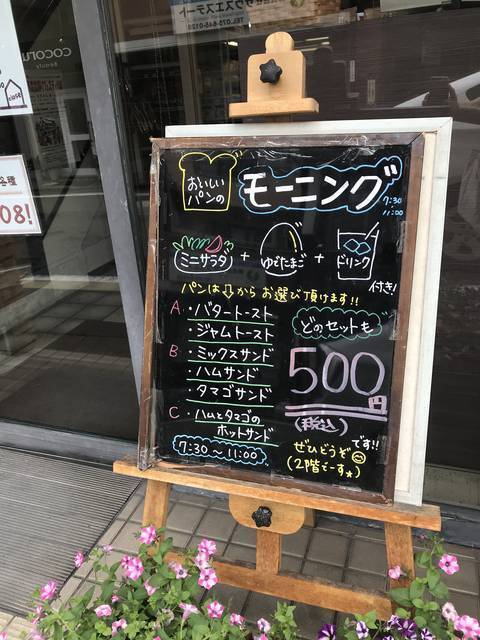 サクスエステート
TEL 075-645-0128
cocoru
Beauty
各種
08!
おいしい
パンの
モーニング
7:30
11:00
ミニサラダ + ゆでたまご + ドリンク
付き!
パンは⇩からお選び頂けます!!
A・バタートースト
・ジャムトースト
B・ミックスサンド
・ハムサンド
・タマゴサンド
C・ハムとタマゴの
ホットサンド
7:30~11:00
どのセットも
500円
(税込)
です!!
ぜひどうぞ
(2階でーす★)